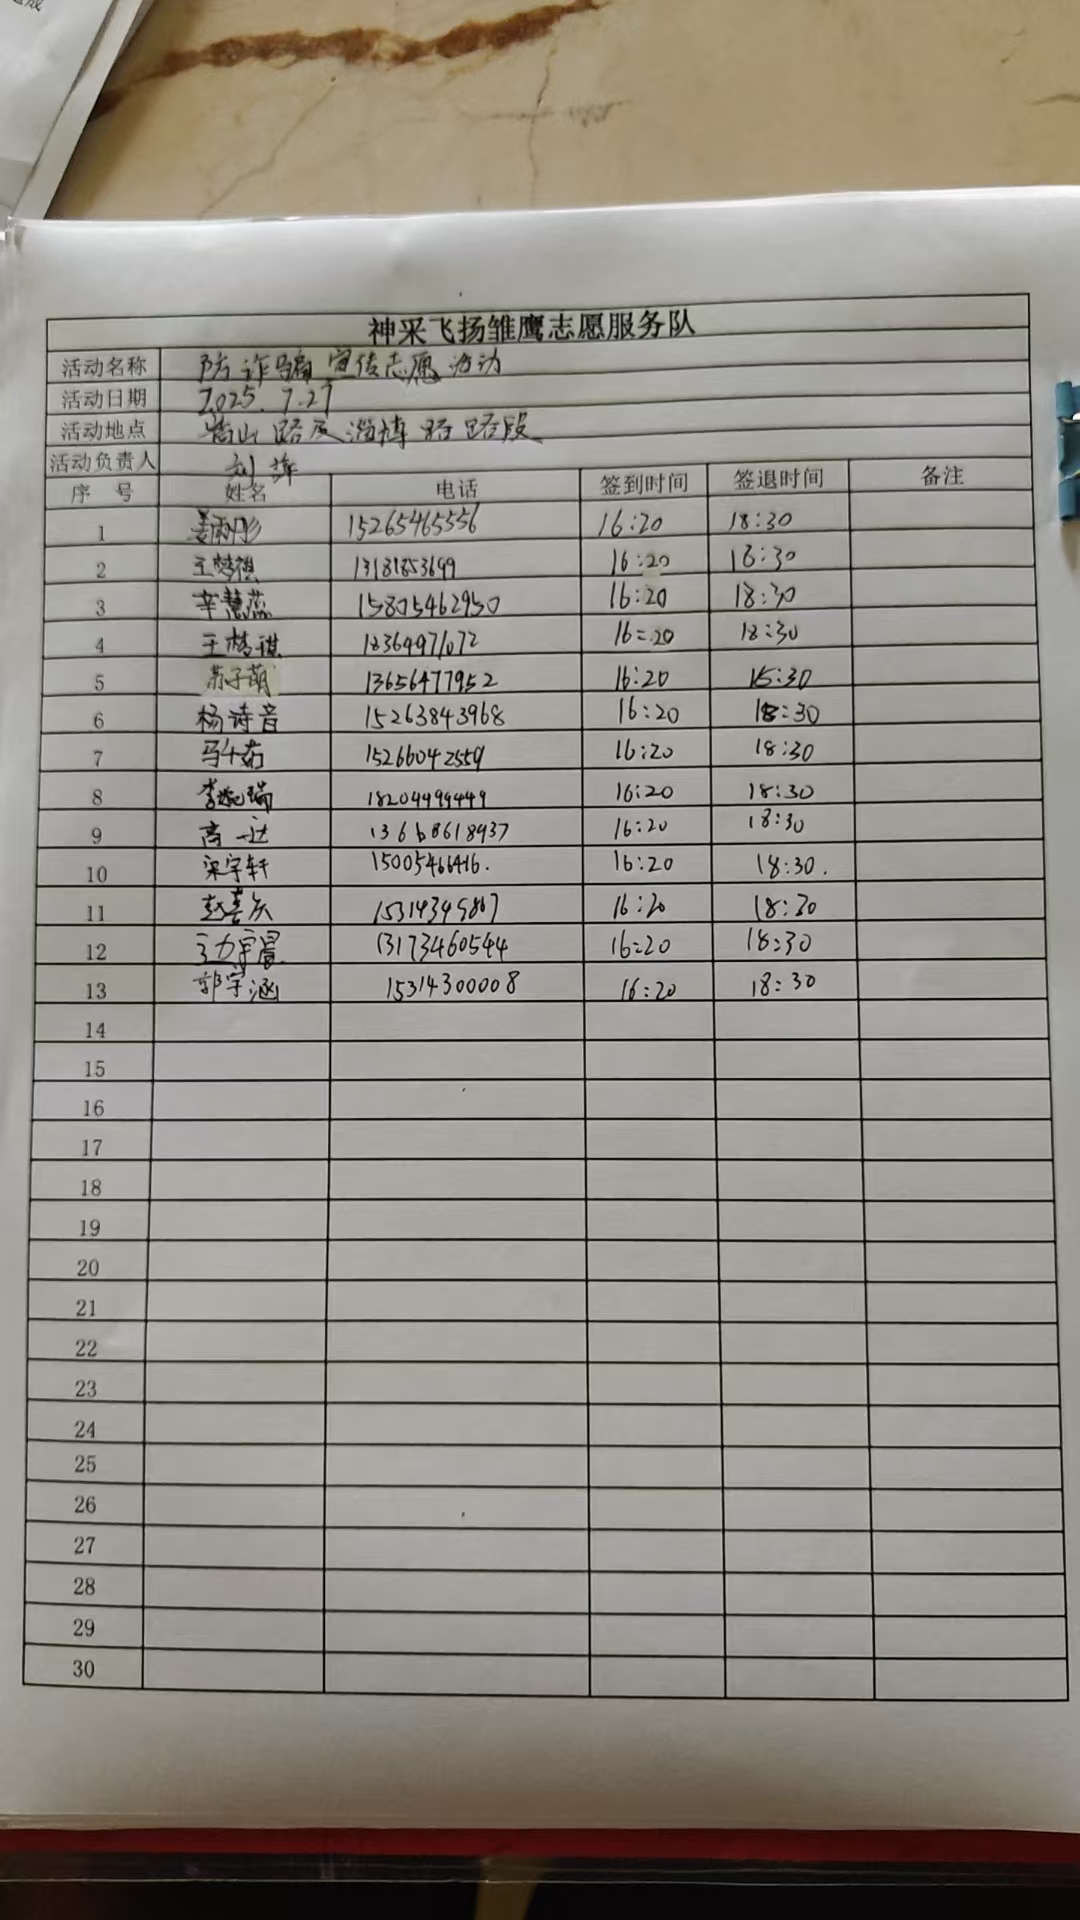 神采飞扬雏鹰志愿服务队
活动名称 防诈骗宣传志愿活动
活动日期 2025.7.27
活动地点 嵩山路及淄博路路段
活动负责人 刘
序号 姓名 电话 签到时间 签退时间 备注
1 姜雨彤 15265465556 16:20 18:30
2 王梦祺 13181853699 16:20 18:30
3 辛慧蕊 15805462950 16:20 18:30
4 王梦琪 18364971072 16:20 18:30
5 苏子萌 13656477952 16:20 15:30
6 杨诗音 15263843968 16:20 18:30
7 马千茹 15266042559 16:20 18:30
8 李婉瑞 18204499449 16:20 18:30
9 高一达 13668618937 16:20 18:30
10 梁宇轩 15005466416. 16:20 18:30.
11 赵喜庆 15314349867 16:20 18:30
12 宇晨 13173460544 16:20 18:30
13 郭宇涵 15314300008 16:20 18:30
14
15
16
17
18
19
20
21
22
23
24
25
26
27
28
29
30